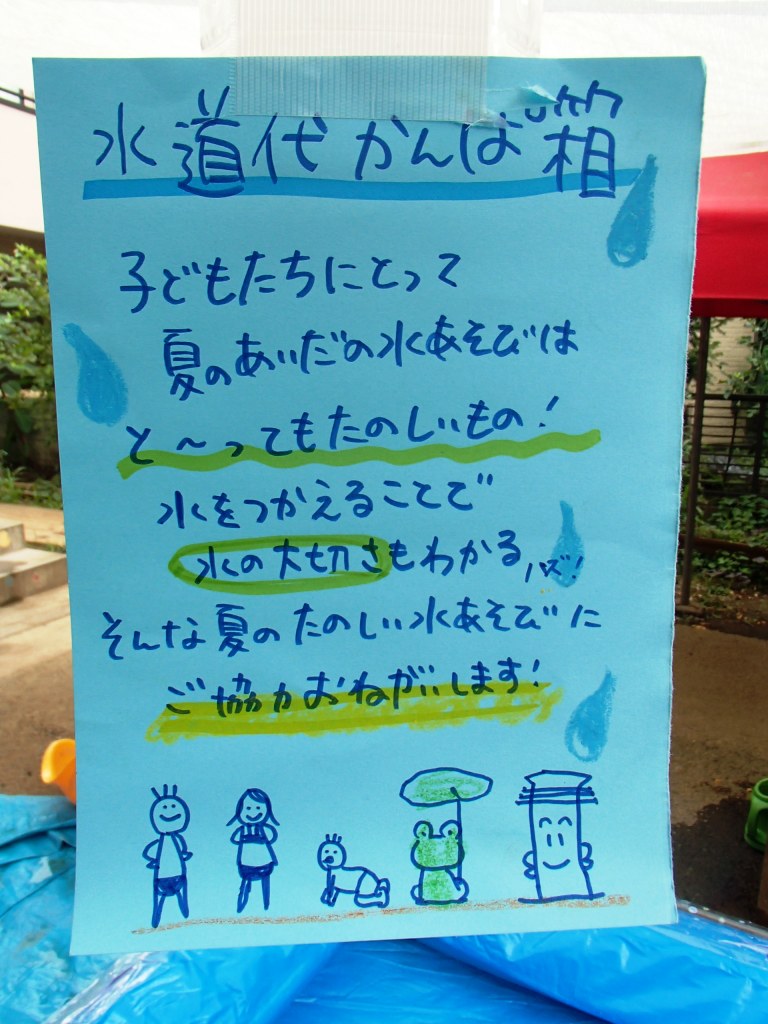 水道代かんぱ箱
子どもたちにとって
夏のあいだの水あそびは
と〜ってもたのしいもの！
水をつかえることで
水の大切さもわかるハズ！
そんな夏のたのしい水あそびに
ご協力おねがいします！